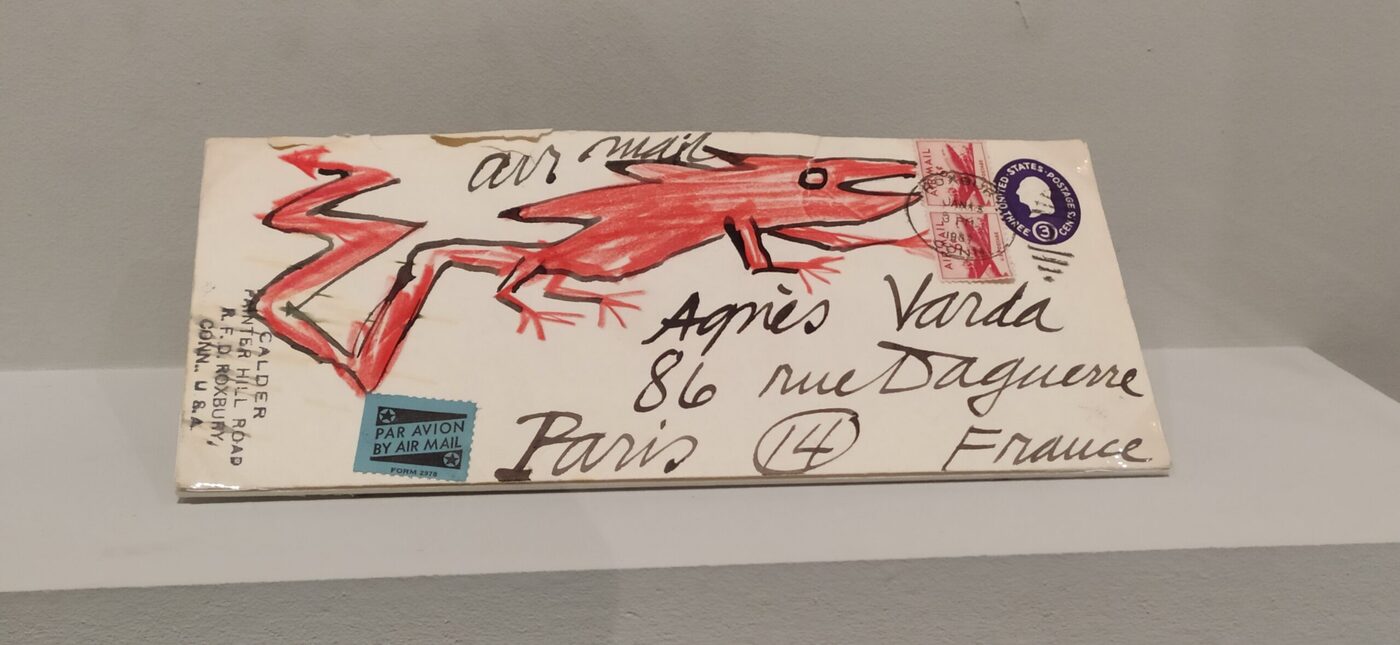 air mail
UNITED STATES POSTAGE
THREE 3 CENTS
AIR MAIL
AIR MAIL
Agnès Varda
86 rue Daguerre
Paris 14 France
PAR AVION
BY AIR MAIL
FORM 2978
CALDER
PAINTER HILL ROAD
R. F. D. ROXBURY,
CONN., U S A